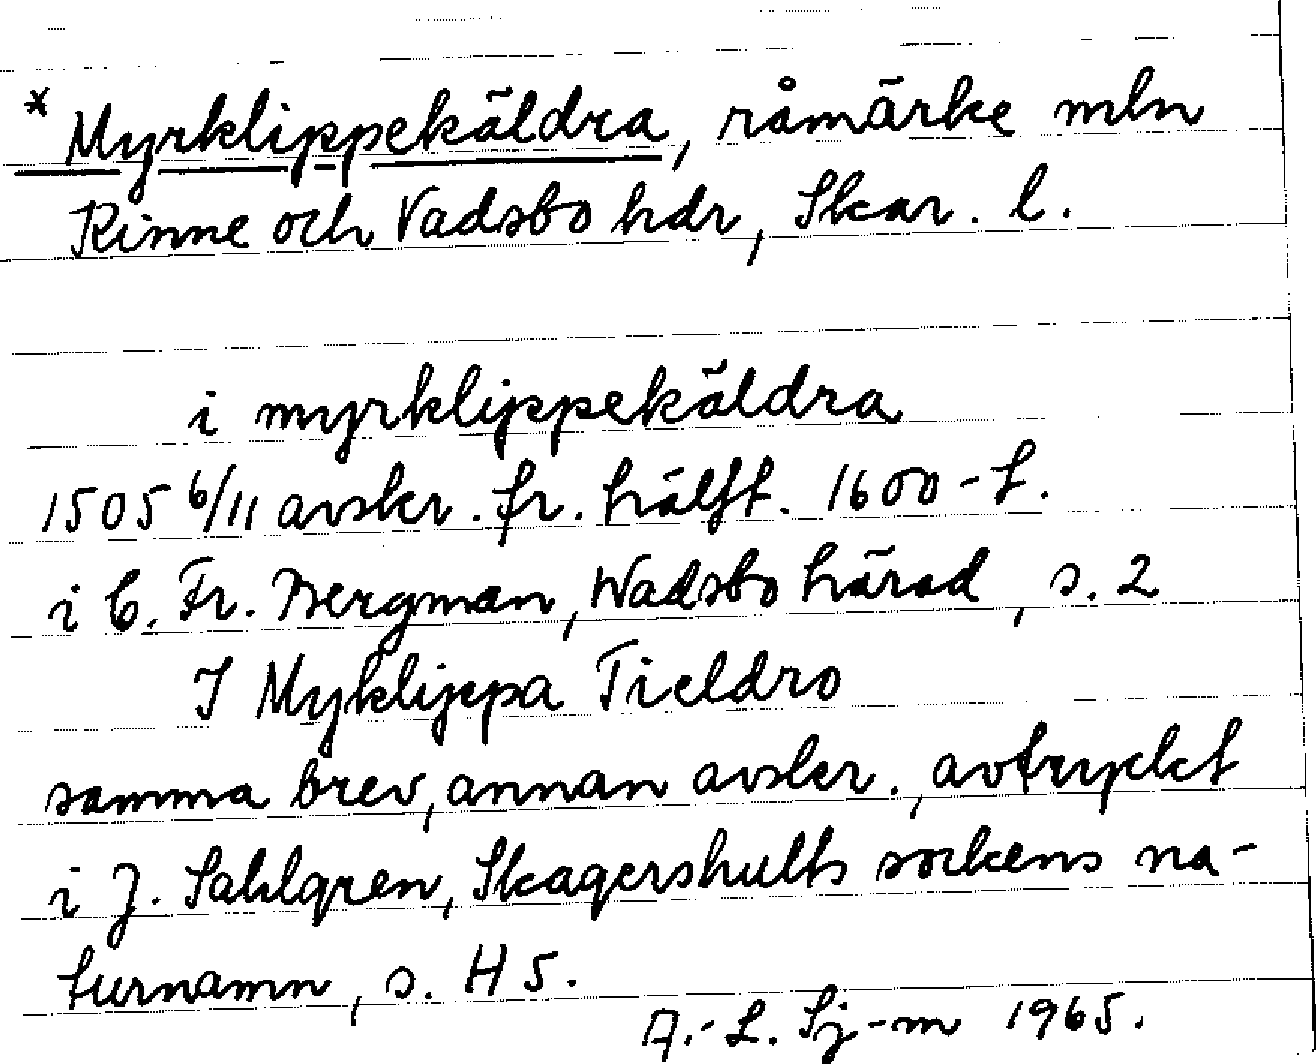 * Myrklippekäldra, råmärke mln
Kinne och Vadsbo hdr, Skar. l.
i myrklippekäldra
1505 6/11 avskr. fr. hälft. 1600-t.
i C. Fr. Bergman, Wadsbo härad, s. 2
I Myklippa Tieldro
samma brev, annan avskr., avtryckt
i J. Sahlgren, Skagershults sockens na-
turnamn, s. H 5.
A.-L. Sj-m 1965.